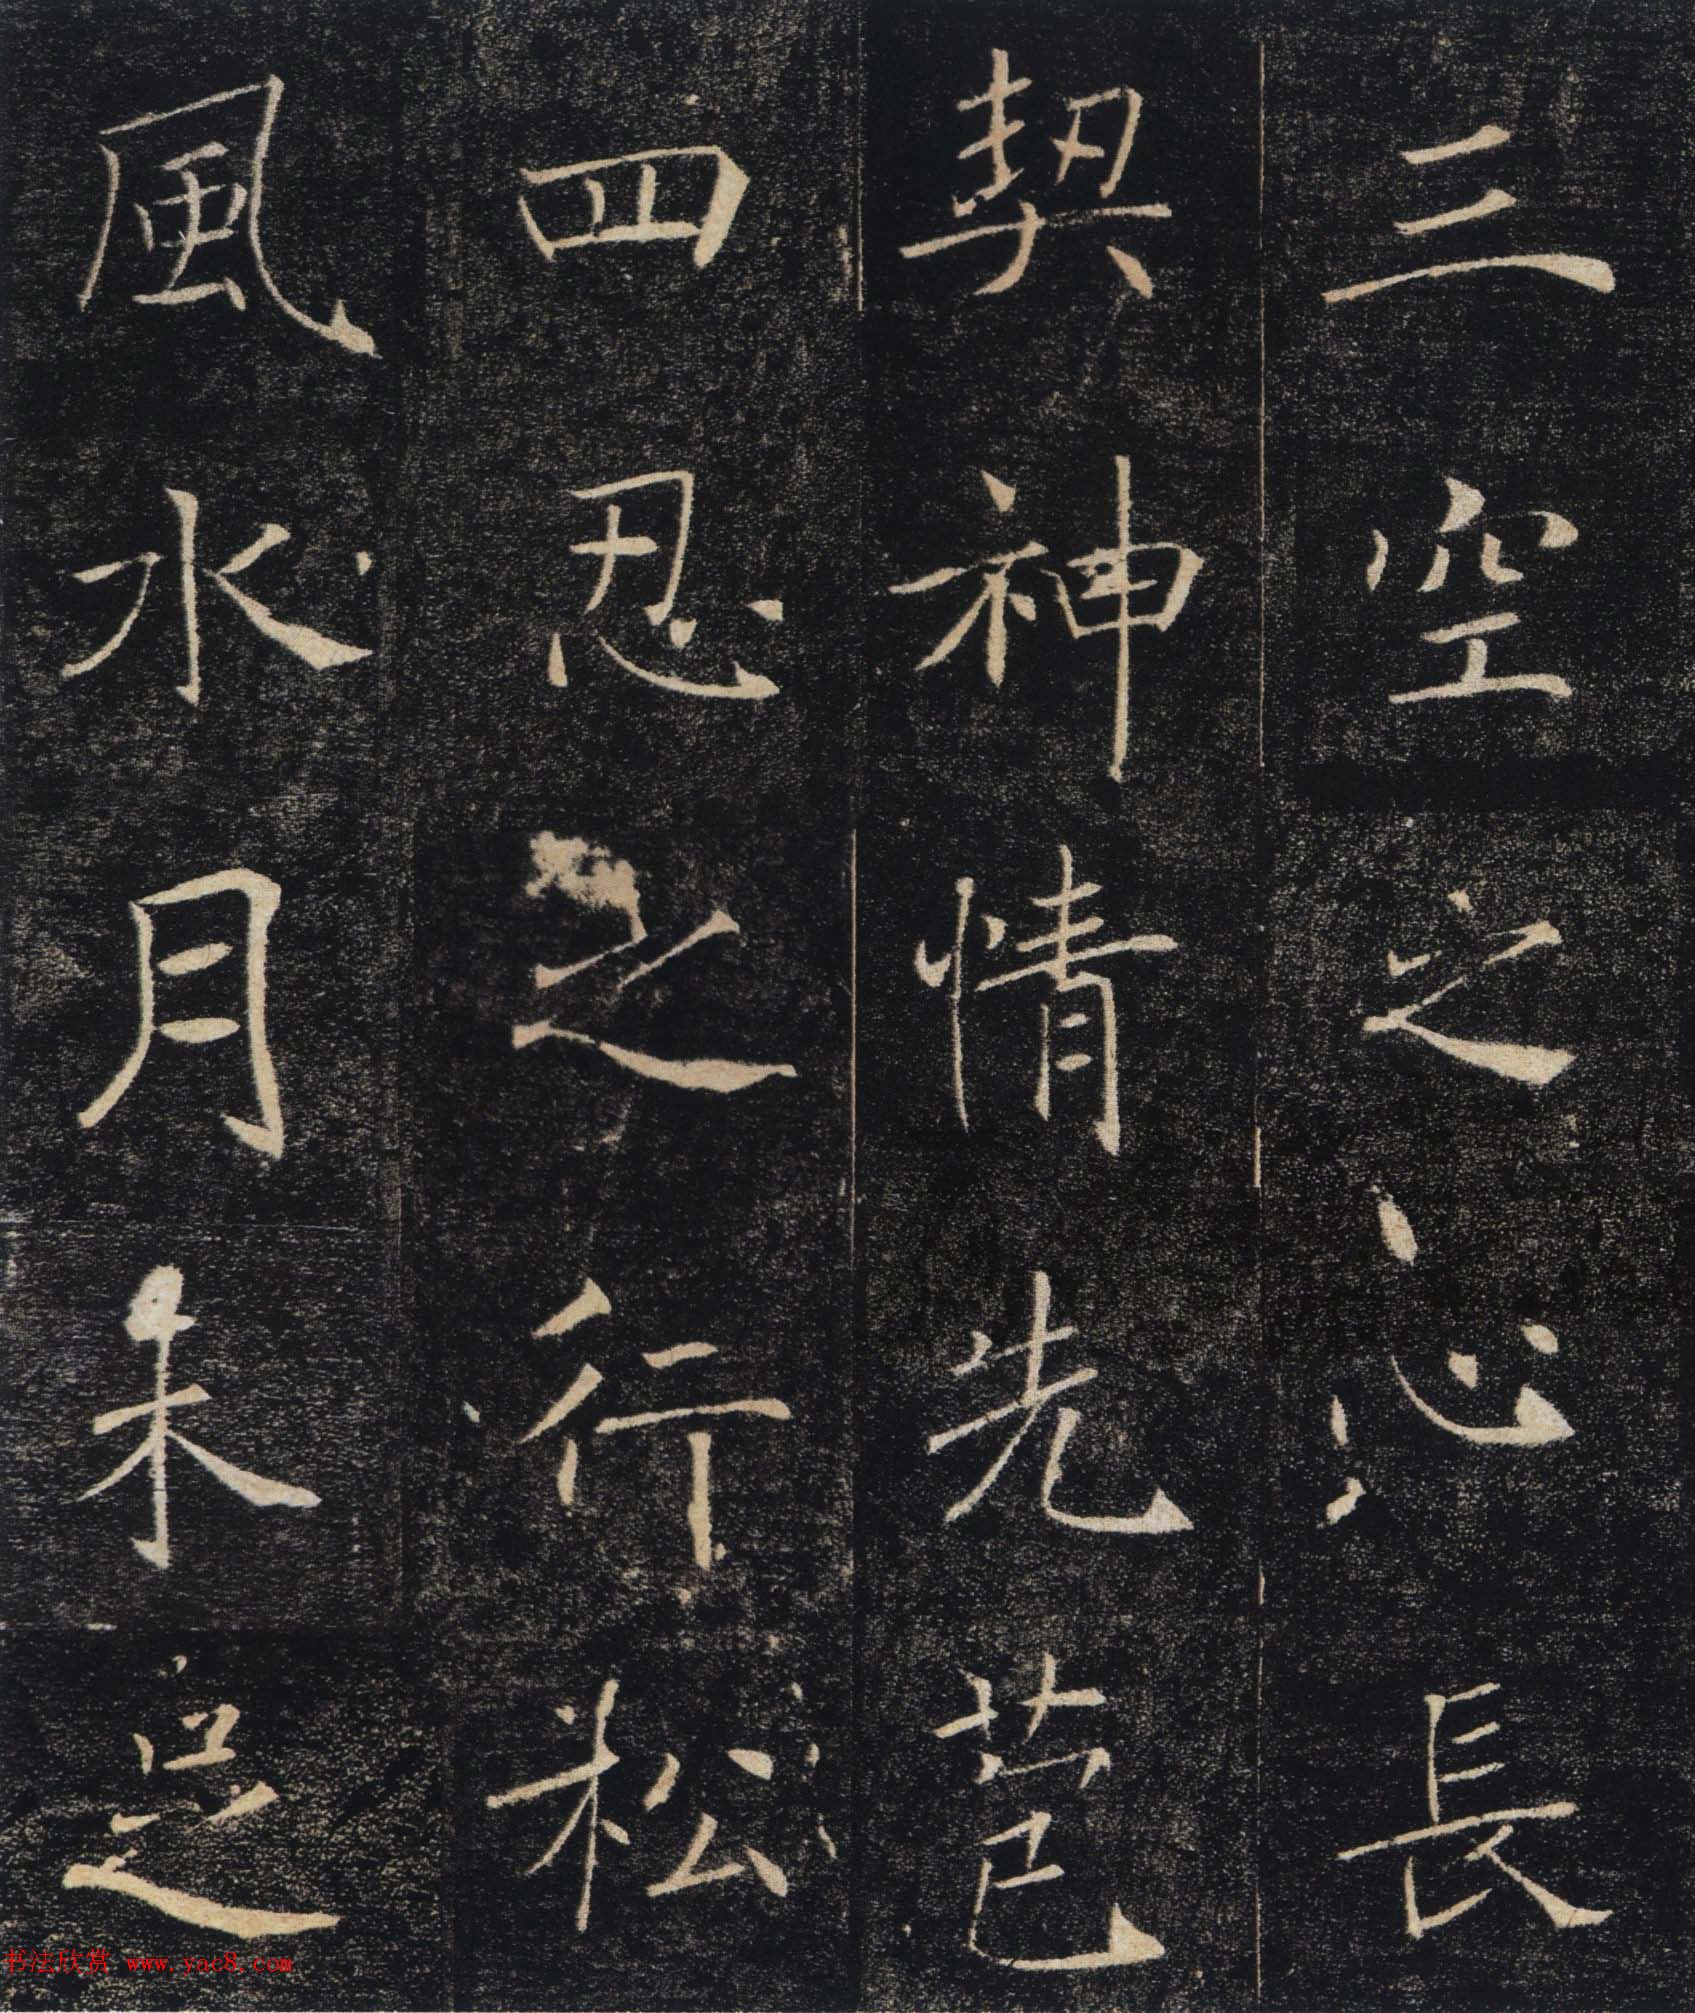 三空之心長
契神情先苞
四忍之行松
風水月未足
书法欣赏 www.yac8.com